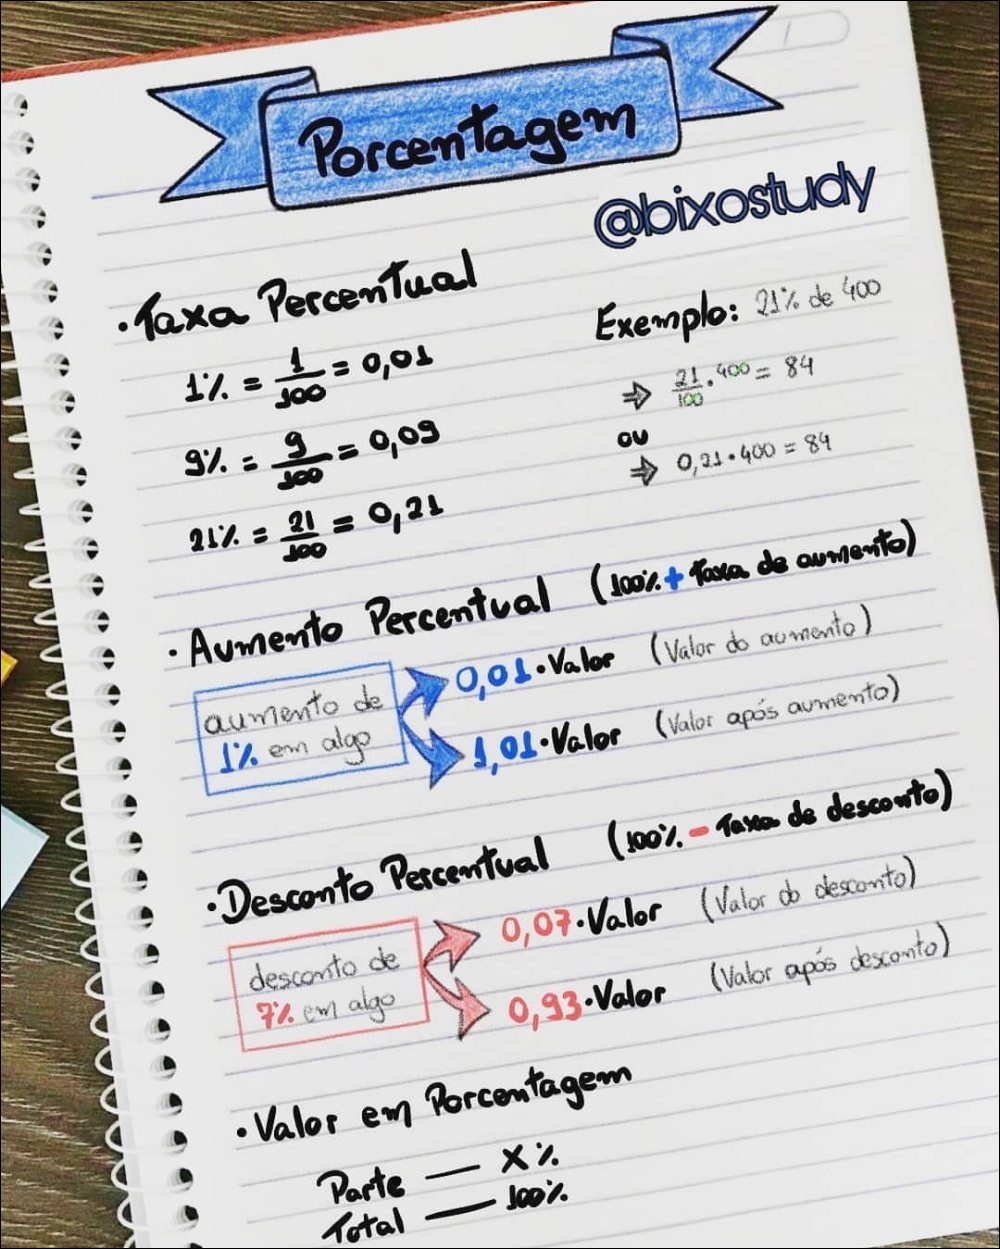 Porcentagem
@bixostudy
• Taxa Percentual
1% = 1/100 = 0,01
9% = 9/100 = 0,09
21% = 21/100 = 0,21
Exemplo: 21% de 400
⇒ 21/100 . 400 = 84
ou
⇒ 0,21 . 400 = 84
• Aumento Percentual (100% + Taxa de aumento)
aumento de
1% em algo
0,01 . Valor (Valor do aumento)
1,01 . Valor (Valor após aumento)
• Desconto Percentual (100% - Taxa de desconto)
desconto de
7% em algo
0,07 . Valor (Valor do desconto)
0,93 . Valor (Valor após desconto)
• Valor em Porcentagem
Parte — X%
Total — 100%